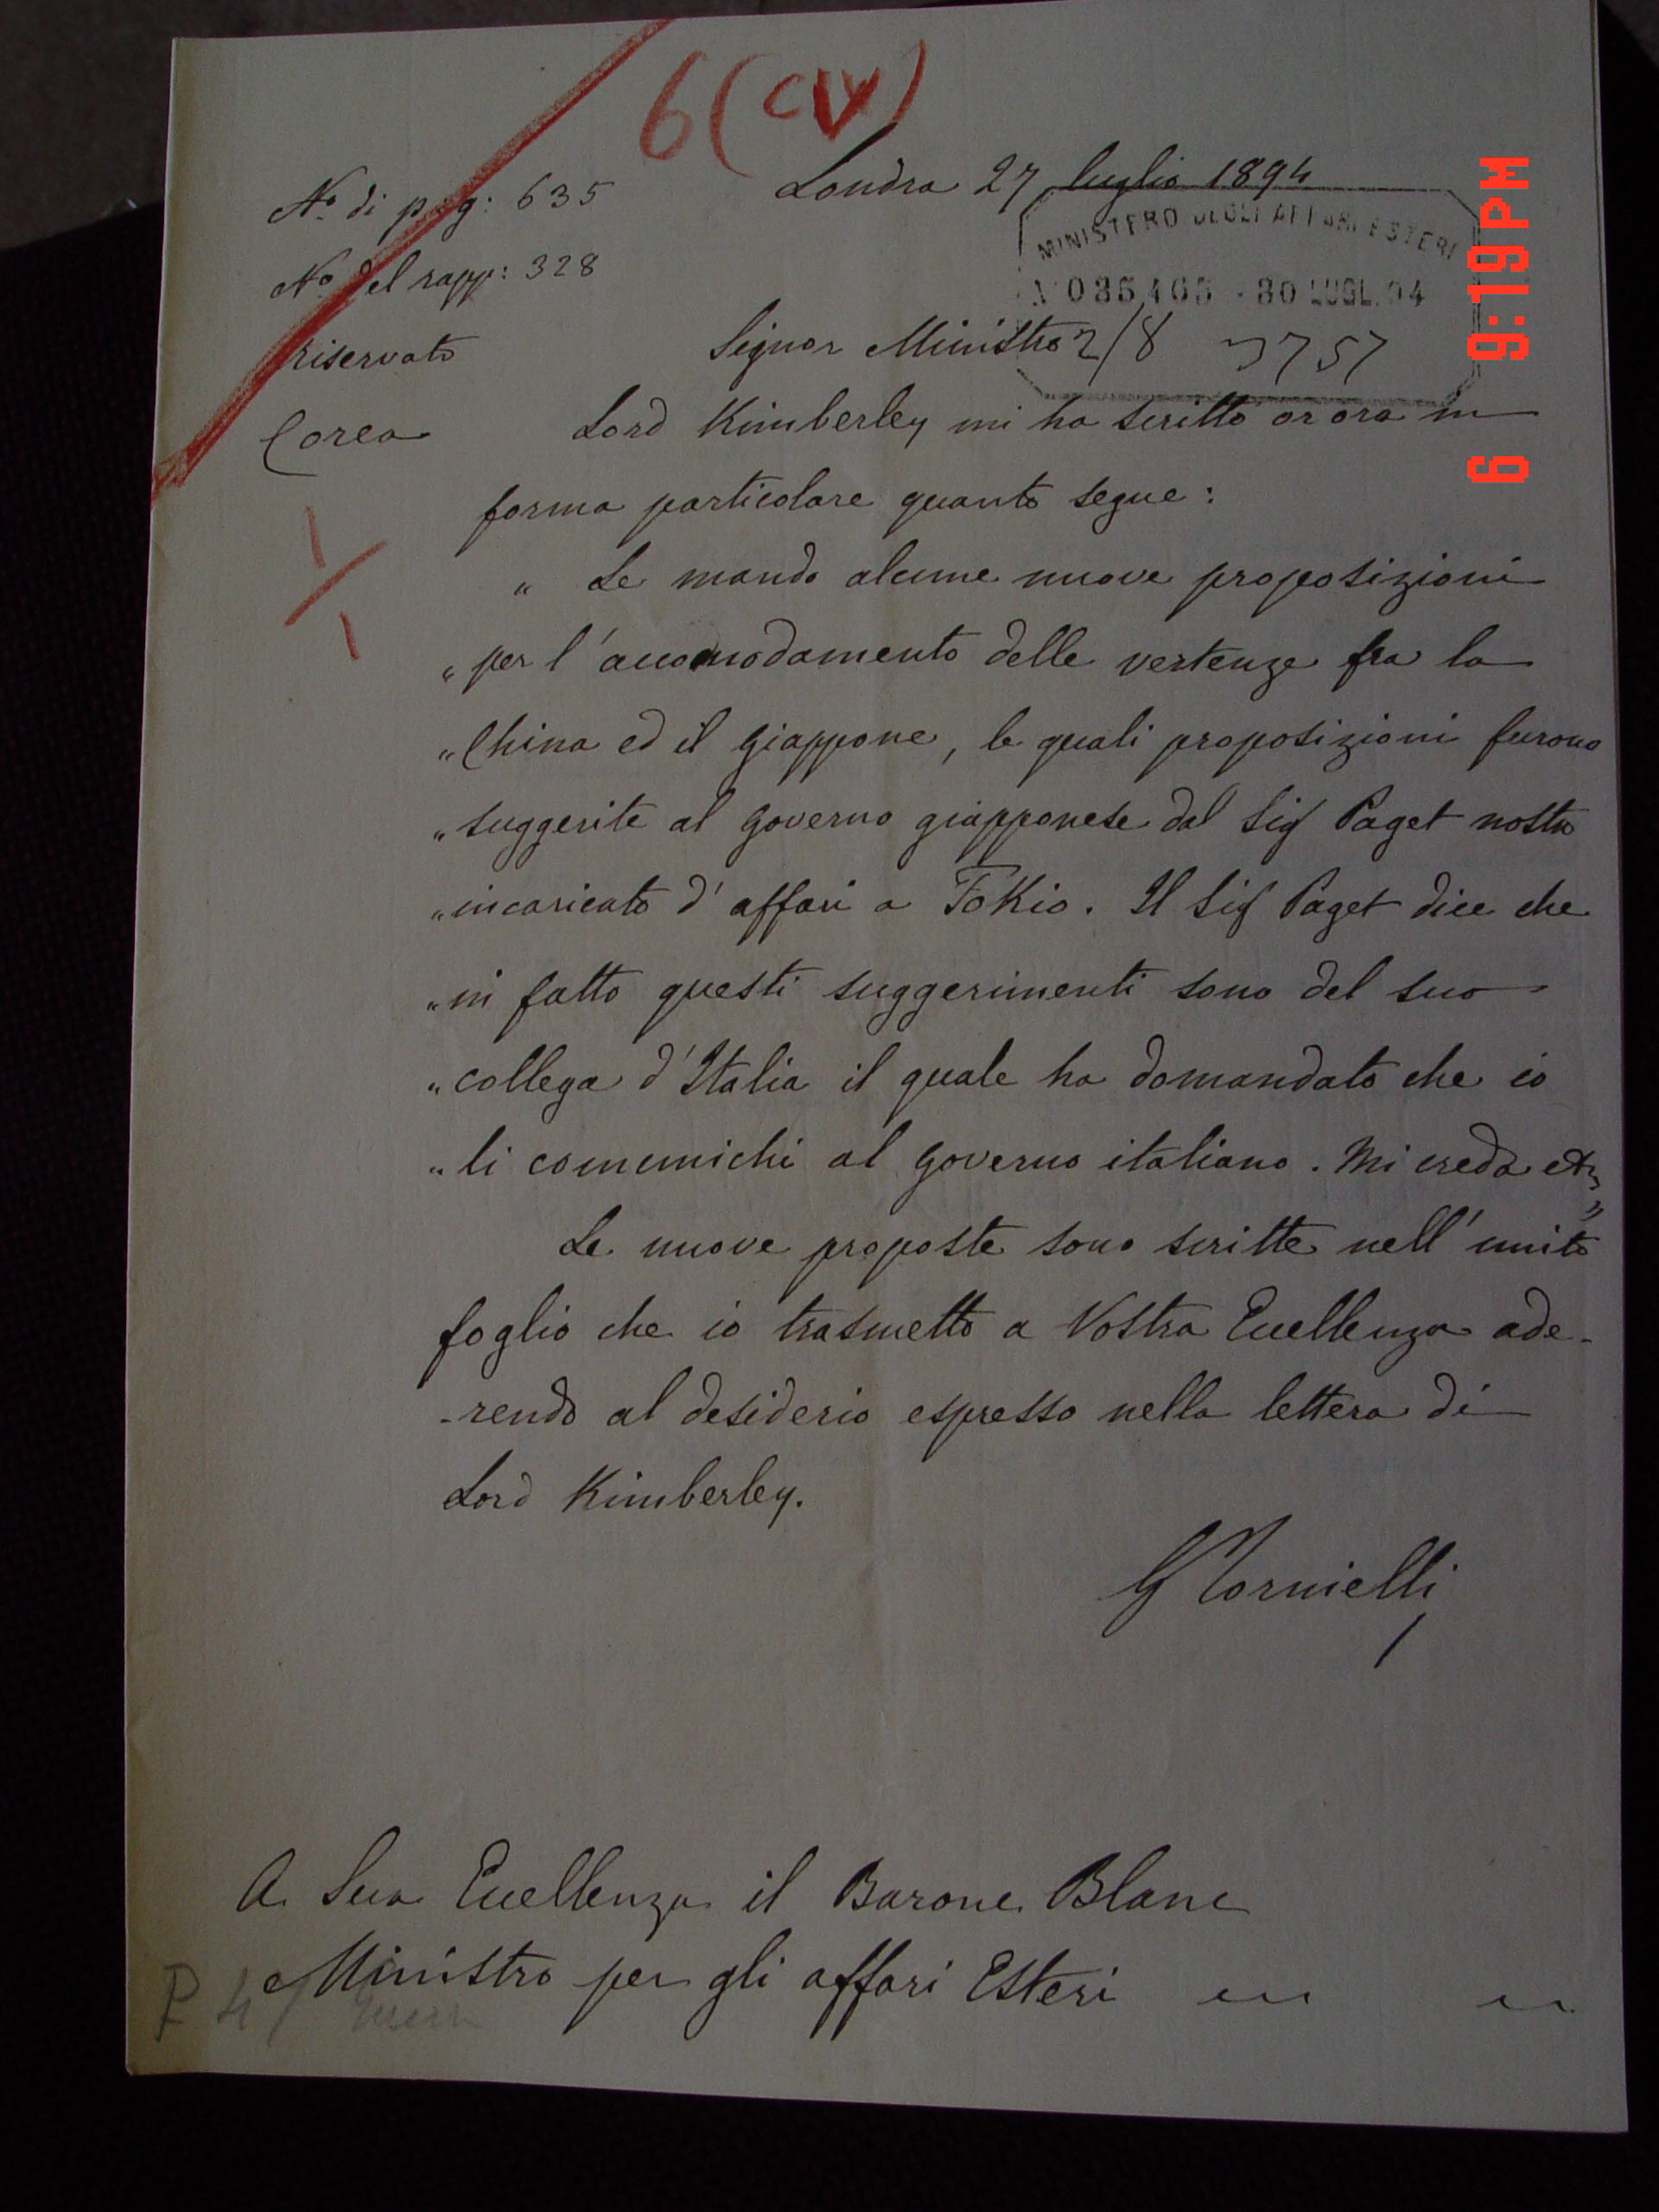 6 (CIV)
Londra 27 luglio 1894
N.º di pag: 635
MINISTERO DEGLI AFFARI ESTERI
N.º del rapp: 328
035405 - 30 LUGL. 94
riservato
Signor Ministro
2/8 3757
Corea
Lord Kimberley mi ha scritto or ora in
forma particolare quanto segue:
" Le mando alcune nuove proposizioni
" per l'accomodamento delle vertenze fra la
" China ed il Giappone, le quali proposizioni furono
" suggerite al governo giapponese dal Sigr Paget nostro
" incaricato d'affari a Tokio. Il Sigr Paget dice che
" in fatto questi suggerimenti sono del suo
" collega d'Italia il quale ha domandato che io
" li comunichi al governo italiano. Mi creda etc "
Le nuove proposte sono scritte nell'unito
foglio che io trasmetto a Vostra Eccellenza ade-
-rendo al desiderio espresso nella lettera di
Lord Kimberley.
G Tornielli
A Sua Eccellenza il Barone Blanc
Ministro per gli affari Esteri
P 4/
6 9:19 PM